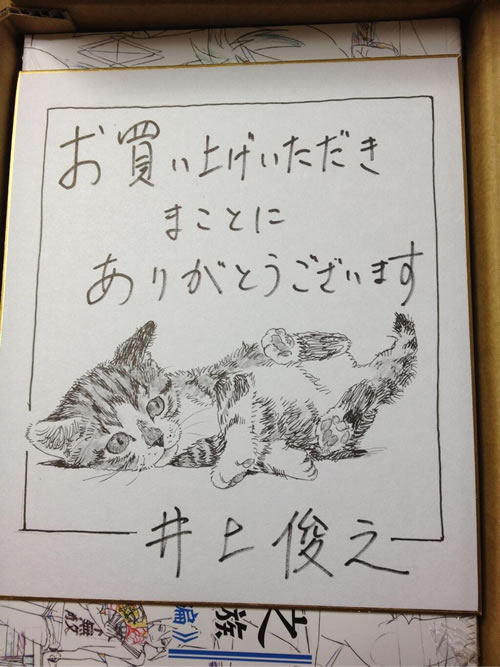 お買い上げいただき
まことに
ありがとうございます
井上俊之